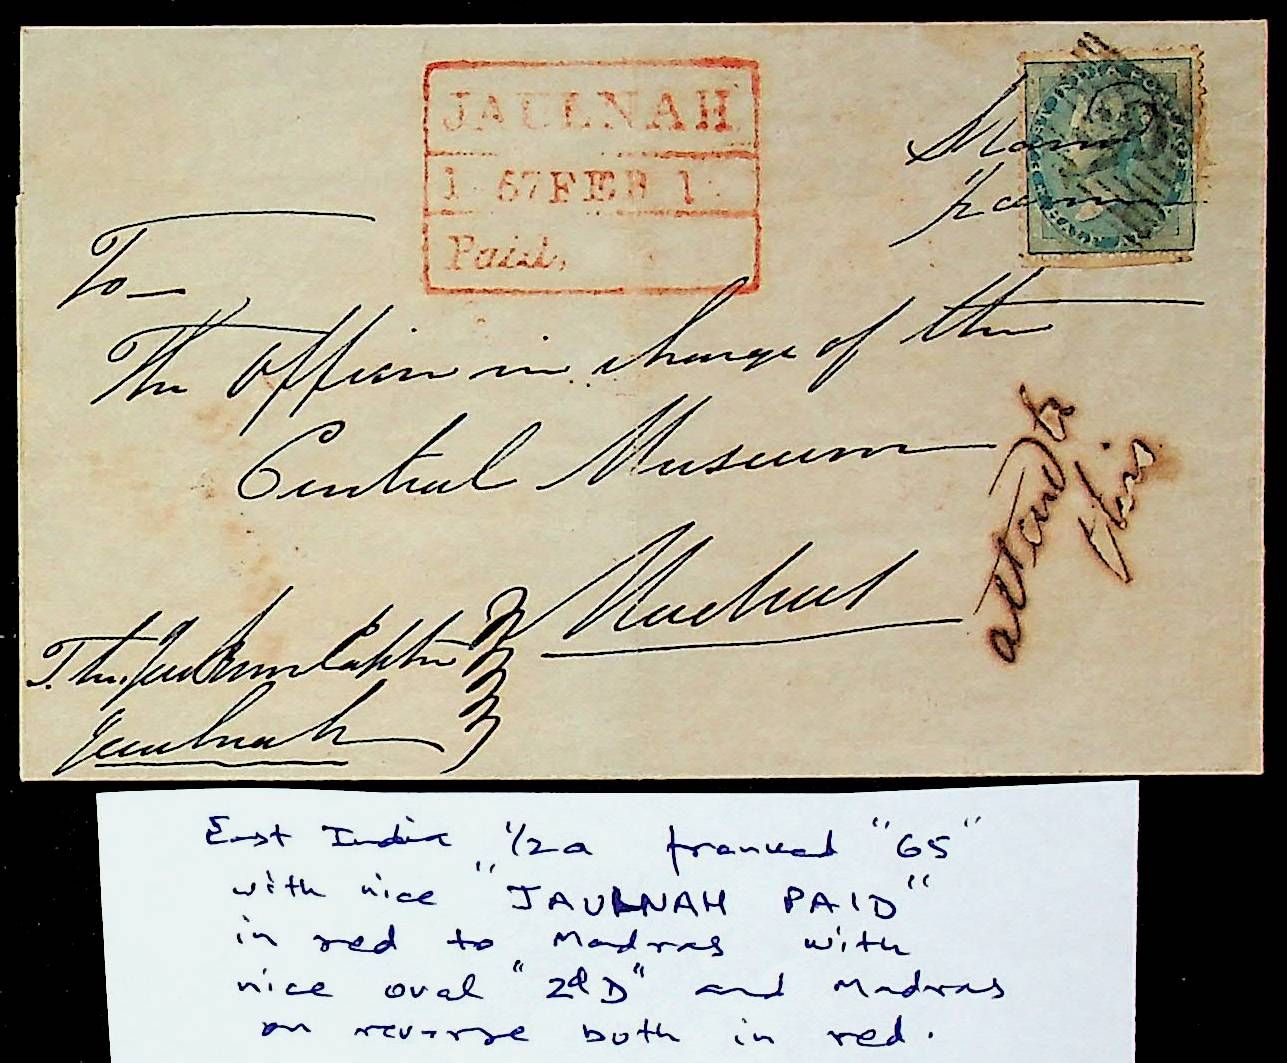 JAULNAH
1 57 FEB 1
Paid,
To
The Officer in charge of the
Central Museum
Madras
attend to
this.
Jaulnah
East India 1/2a franked "65"
with nice "JAULNAH PAID"
in red to Madras with
nice oval "2d D" and Madras
on reverse both in red.